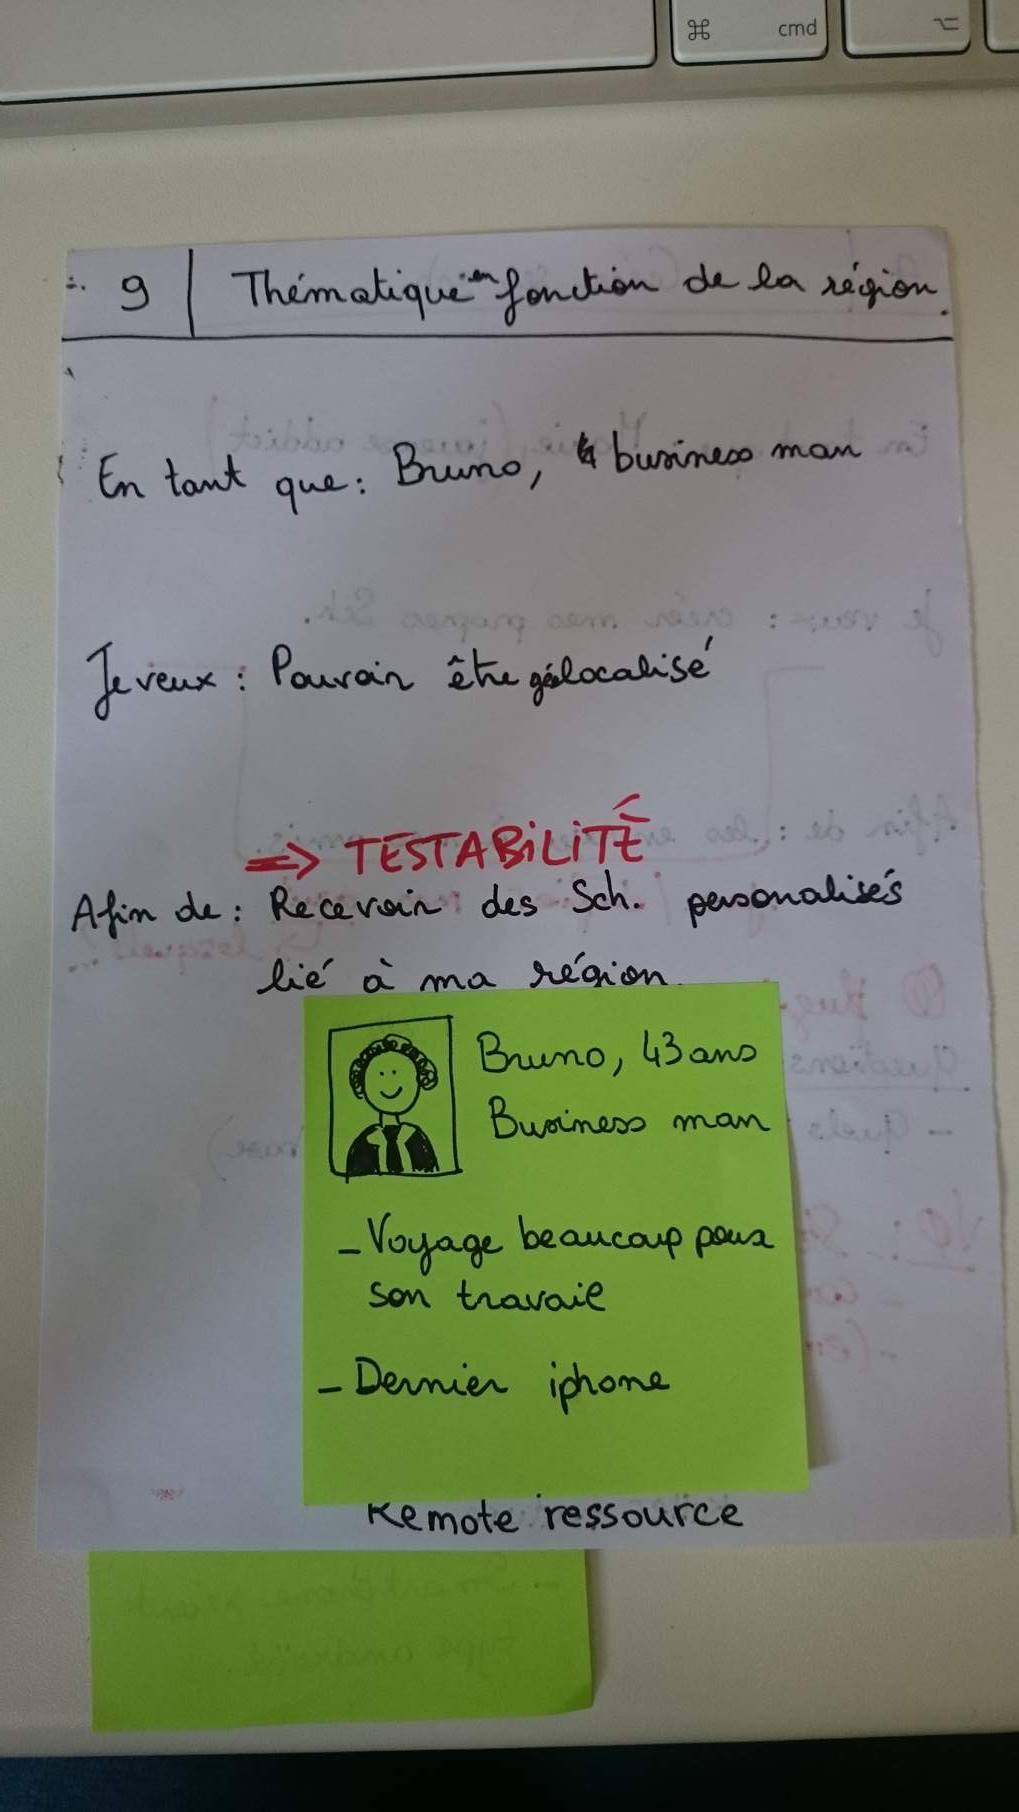 ⌘ cmd
⌥
9 | Thématique en fonction de la région.
En tant que : Bruno, business man
Je veux : Pouvoir être géolocalisé
=> TESTABiLiTÉ
Afin de : Recevoir des Sch. personalisés
lié à ma région
Bruno, 43 ans
Business man
- Voyage beaucoup pour
son travail
- Dernier iphone
Remote ressource